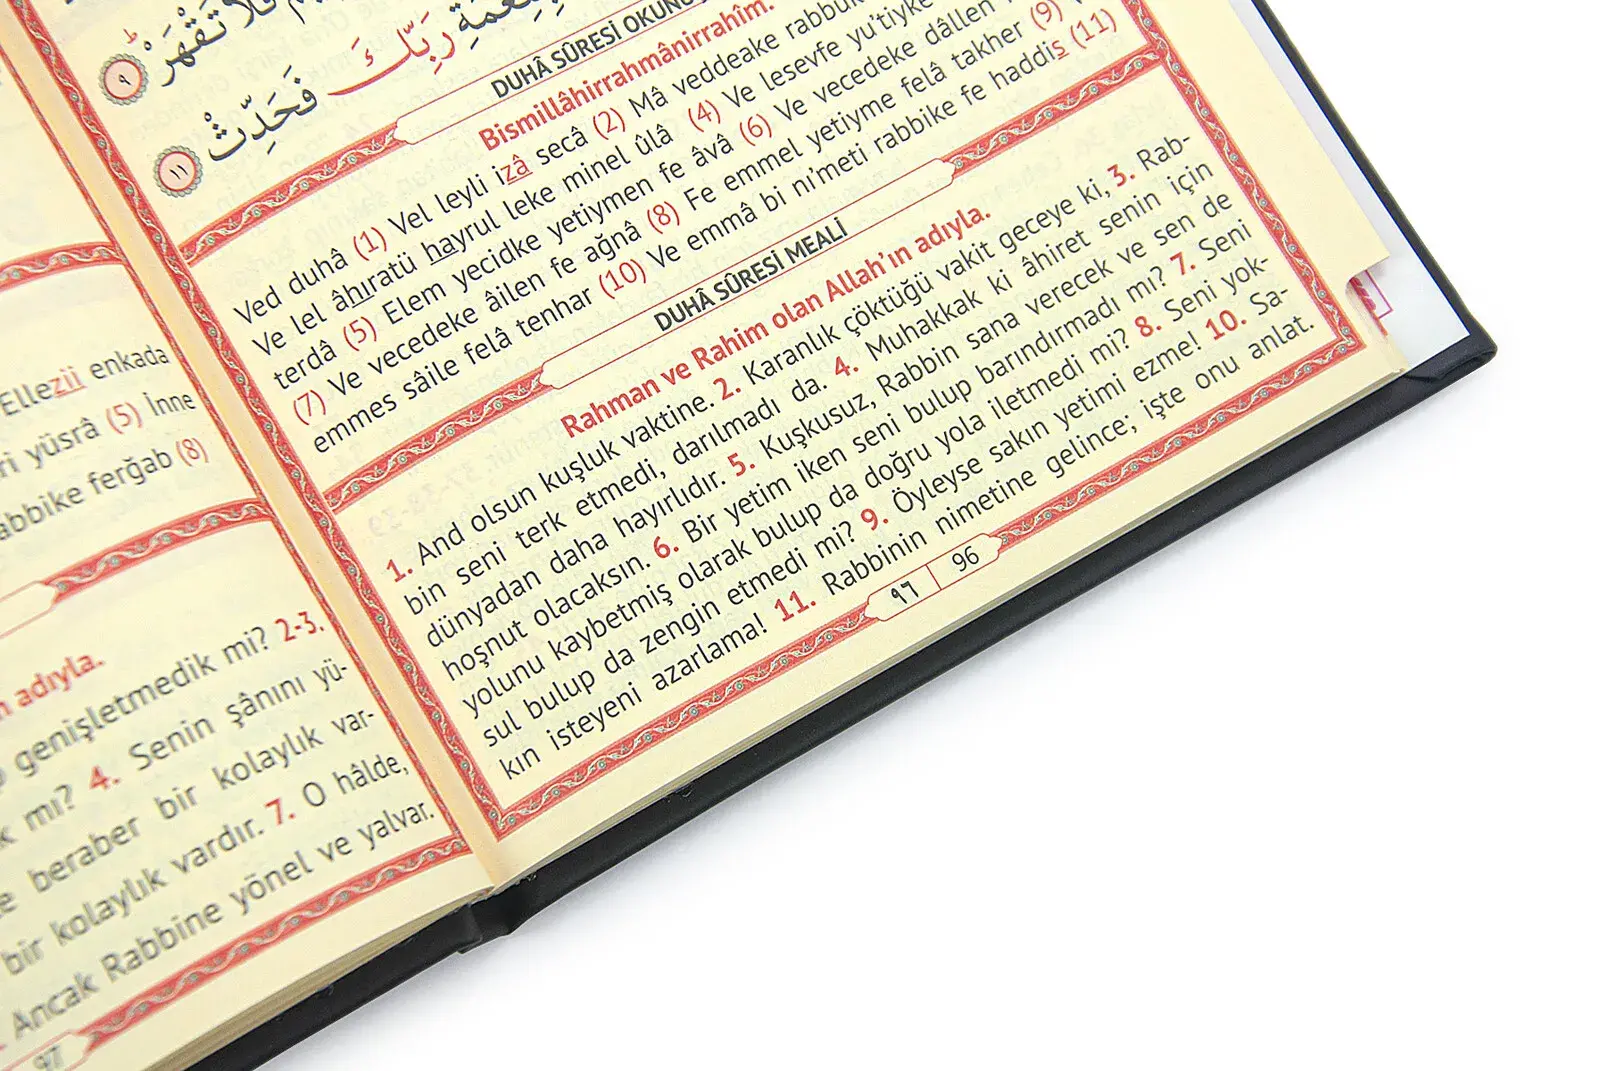 فَلَا تَقْهَرْ ۹
بِنِعْمَةِ رَبِّكَ فَحَدِّثْ ۱۱
DUHÂ SÛRESİ
Bismillâhirrahmânirrahîm.
Ved duhâ (1) Vel leyli izâ secâ (2) Mâ veddeake
Ve lel âhıratü hayrul leke minel ûlâ (4) Ve lesevfe yu’tiyke
terdâ (5) Elem yecidke yetiymen fe âvâ (6) Ve vecedeke dâllen
(7) Ve vecedeke âilen fe ağnâ (8) Fe emmel yetiyme felâ takher (9)
emmes sâile felâ tenhar (10) Ve emmâ bi nı’meti rabbike fe haddis (11)
DUHÂ SÛRESİ MEALİ
Rahman ve Rahim olan Allah’ın adıyla.
1. And olsun kuşluk vaktine. 2. Karanlık çöktüğü vakit geceye ki, 3. Rab-
bin seni terk etmedi, darılmadı da. 4. Muhakkak ki âhiret senin için
dünyadan daha hayırlıdır. 5. Kuşkusuz, Rabbin sana verecek ve sen de
hoşnut olacaksın. 6. Bir yetim iken seni bulup barındırmadı mı? 7. Seni
yolunu kaybetmiş olarak bulup da doğru yola iletmedi mi? 8. Seni yok-
sul bulup da zengin etmedi mi? 9. Öyleyse sakın yetimi ezme! 10. Sa-
kın isteyeni azarlama! 11. Rabbinin nimetine gelince; işte onu anlat.
٩٦ 96
Ellezii enkada
yüsrâ (5) İnne
rabbike ferğab (8)
adıyla.
genişletmedik mi? 2-3.
mı? 4. Senin şânını yü-
beraber bir kolaylık var-
bir kolaylık vardır. 7. O hâlde,
Ancak Rabbine yönel ve yalvar.
97